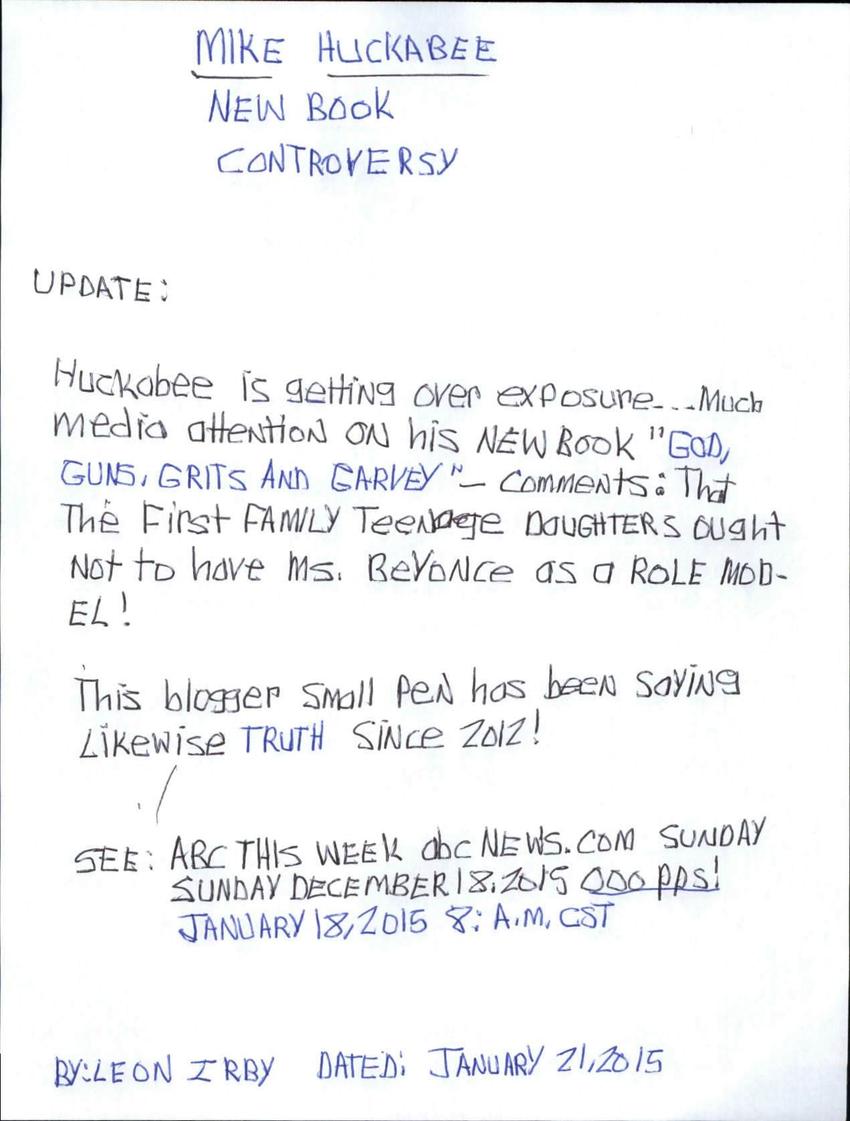 MIKE HUCKABEE
NEW BOOK
CONTROVERSY
UPDATE:
Huckabee is getting over exposure...Much
media attention ON his NEW BOOK "GOD,
GUNS, GRITS AND GARVEY"— COMMENTS: That
The First FAMILY Teenage DAUGHTERS OUGht
Not to have Ms. BeYONce as a ROLE MOD-
EL!
This blogger Small PeN has been SaYiNg
Likewise TRUTH SiNce 2012!
SEE: ABC THIS WEEK abc NEWS.COM SUNDAY
SUNDAY DECEMBER 18, 2015 OOO PPS!
JANUARY 18, 2015 8: A.M. CST
BY: LEON IRBY DATED: JANUARY 21, 2015